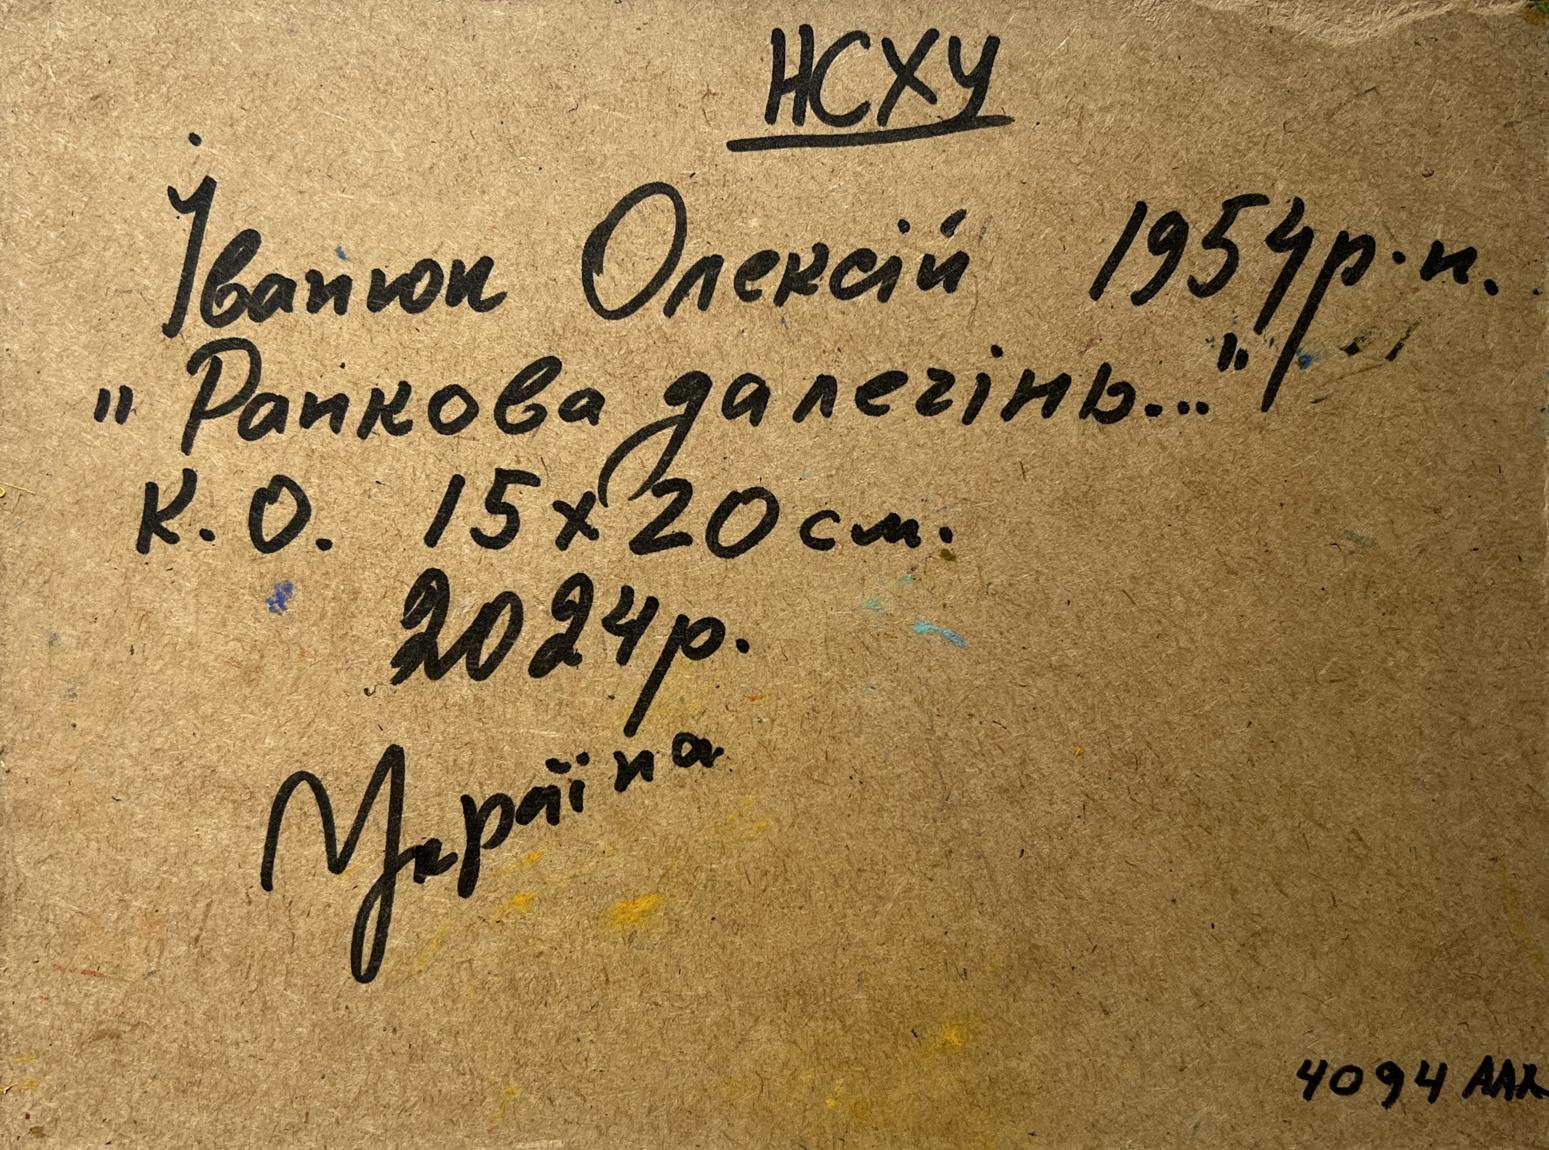 НСХУ
Іванюк Олексій 1954р.н.
"Ранкова далечінь..."
К.О. 15х20см.
2024р.
Україна
4094